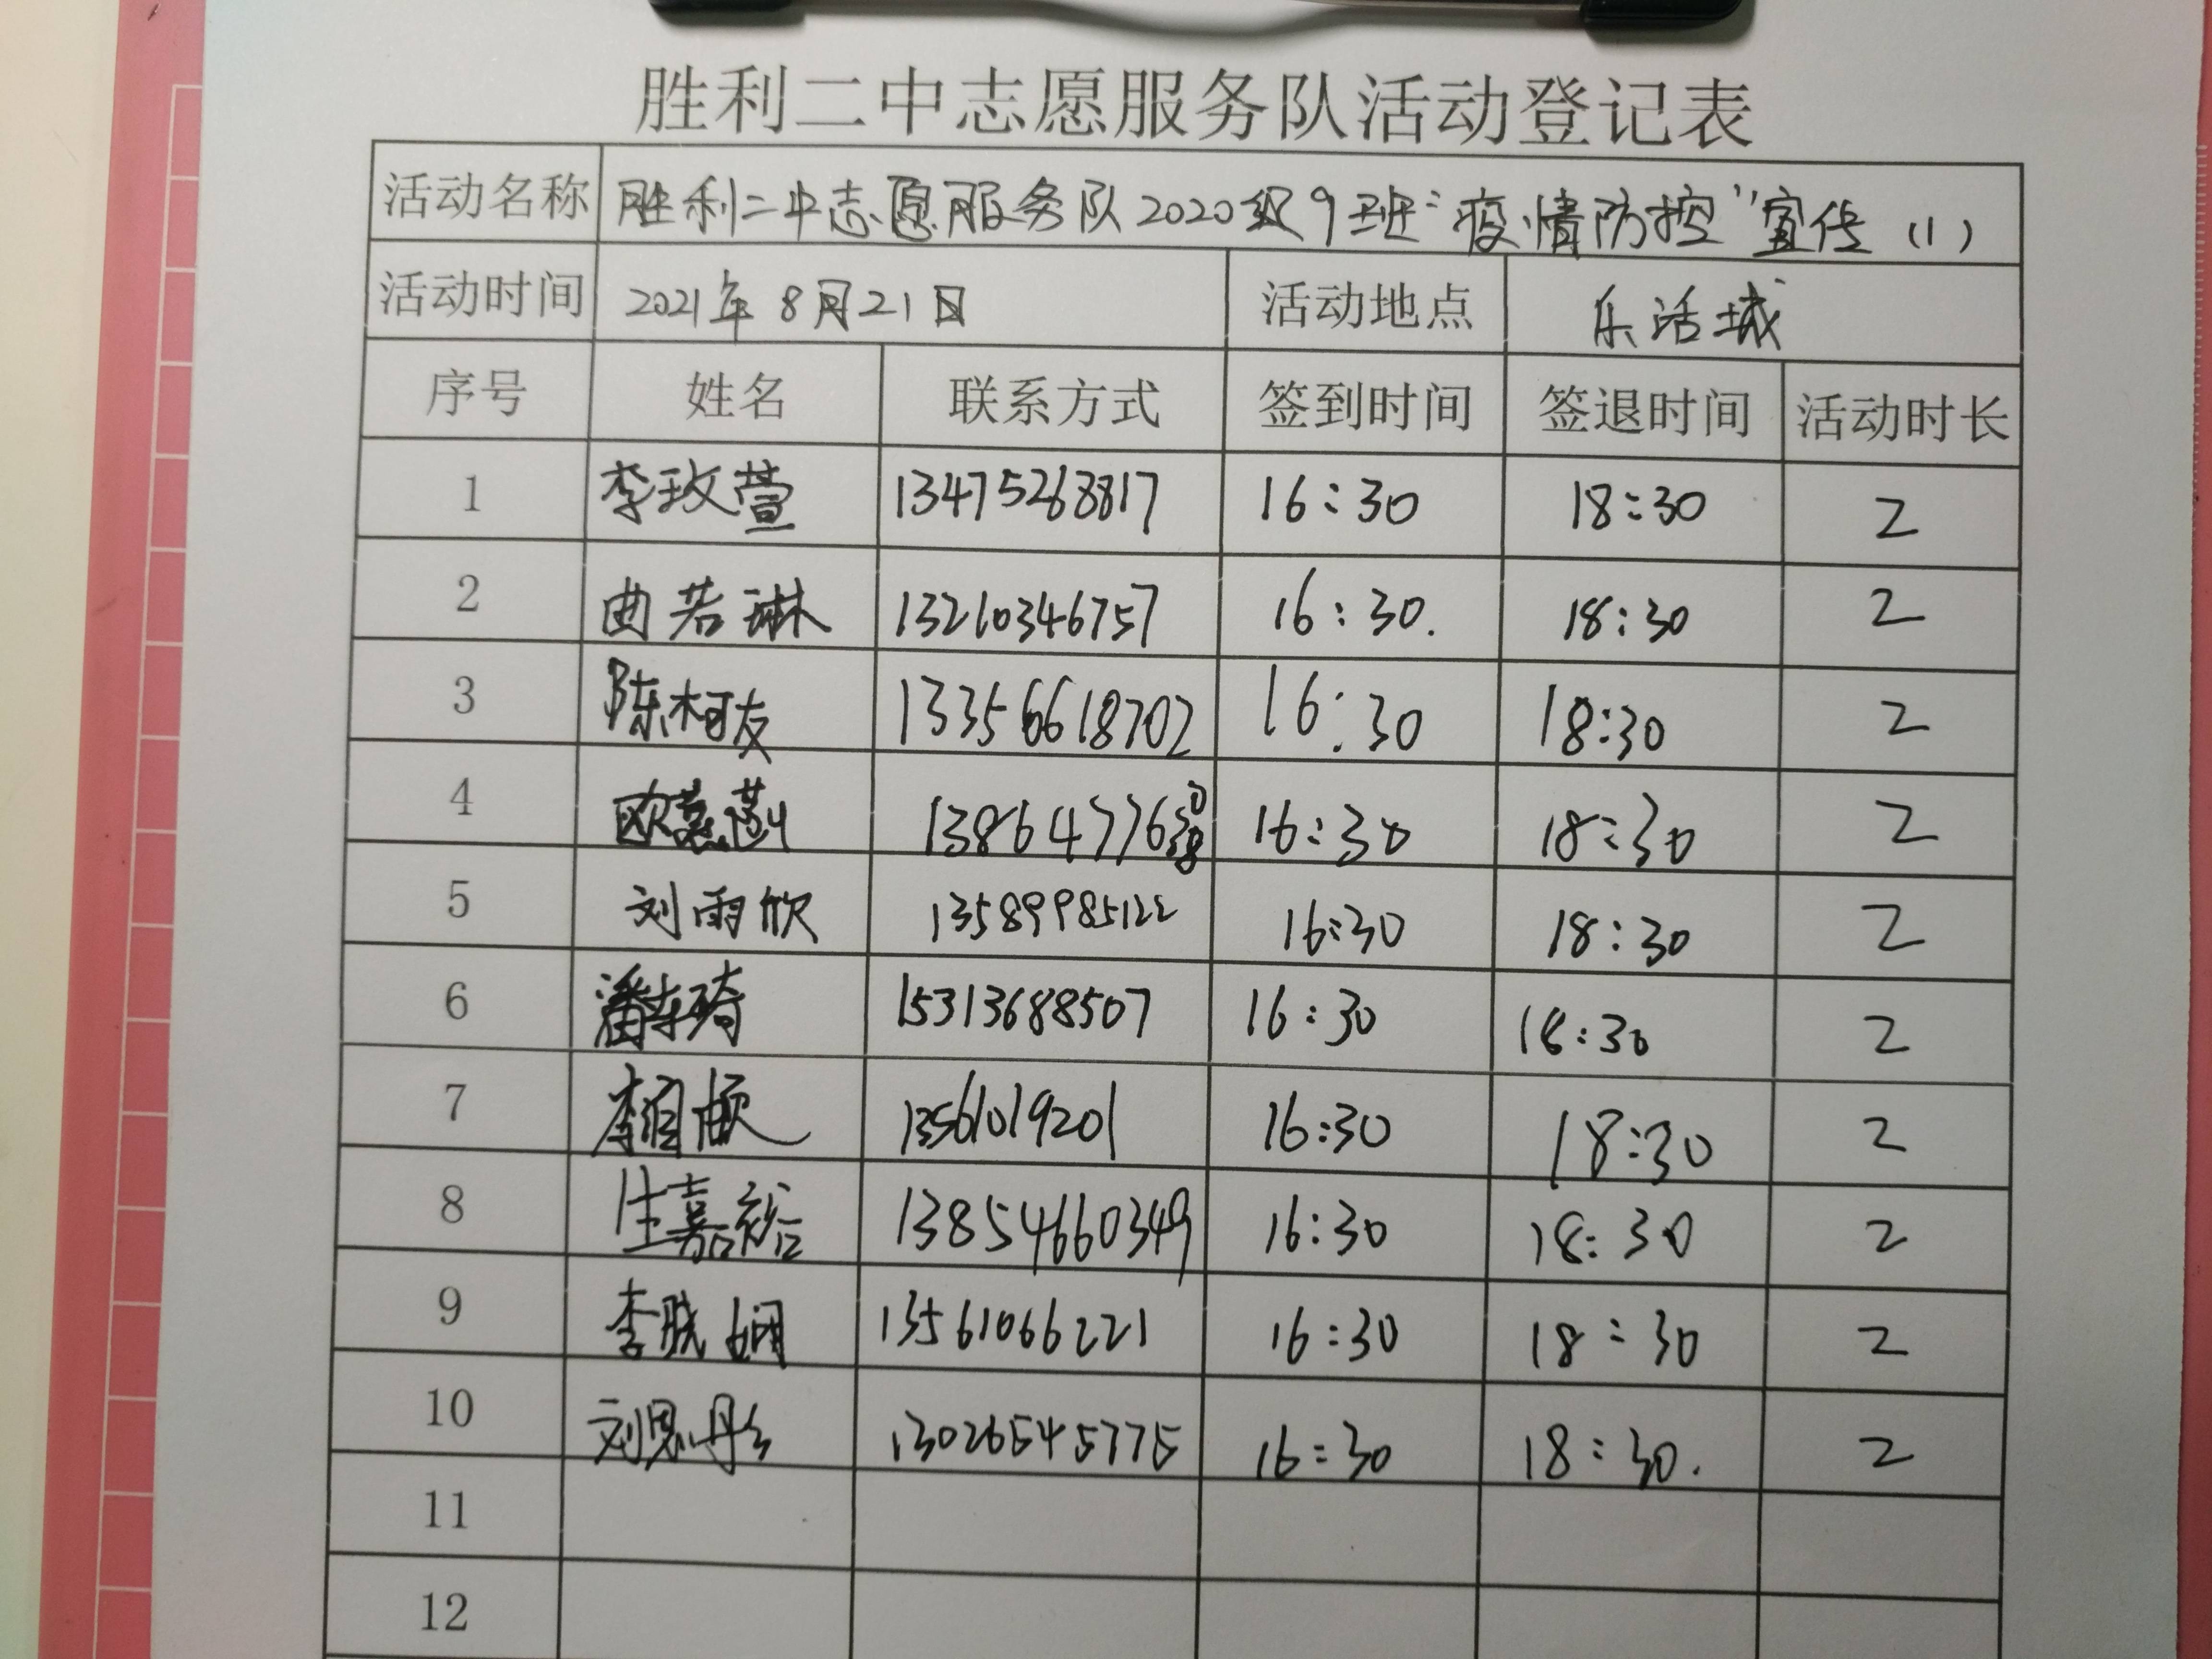 胜利二中志愿服务队活动登记表
活动名称 胜利二中志愿服务队2020级9班“疫情防控”宣传（1）
活动时间 2021年8月21日 活动地点 乐活城
序号 姓名 联系方式 签到时间 签退时间 活动时长
1 李玫萱 13475268817 16:30 18:30 2
2 曲若琳 13210346757 16:30. 18:30 2
3 陈柯友 13356618702 16:30 18:30 2
4 16:30 18:30 2
5 刘雨欣 13589985122 16:30 18:30 2
6 15313688507 16:30 18:30 2
7 16:30 18:30 2
8 13854660349 16:30 18:30 2
9 李晓娴 13561066221 16:30 18:30 2
10 刘思彤 13026545775 16:30 18:30. 2
11
12